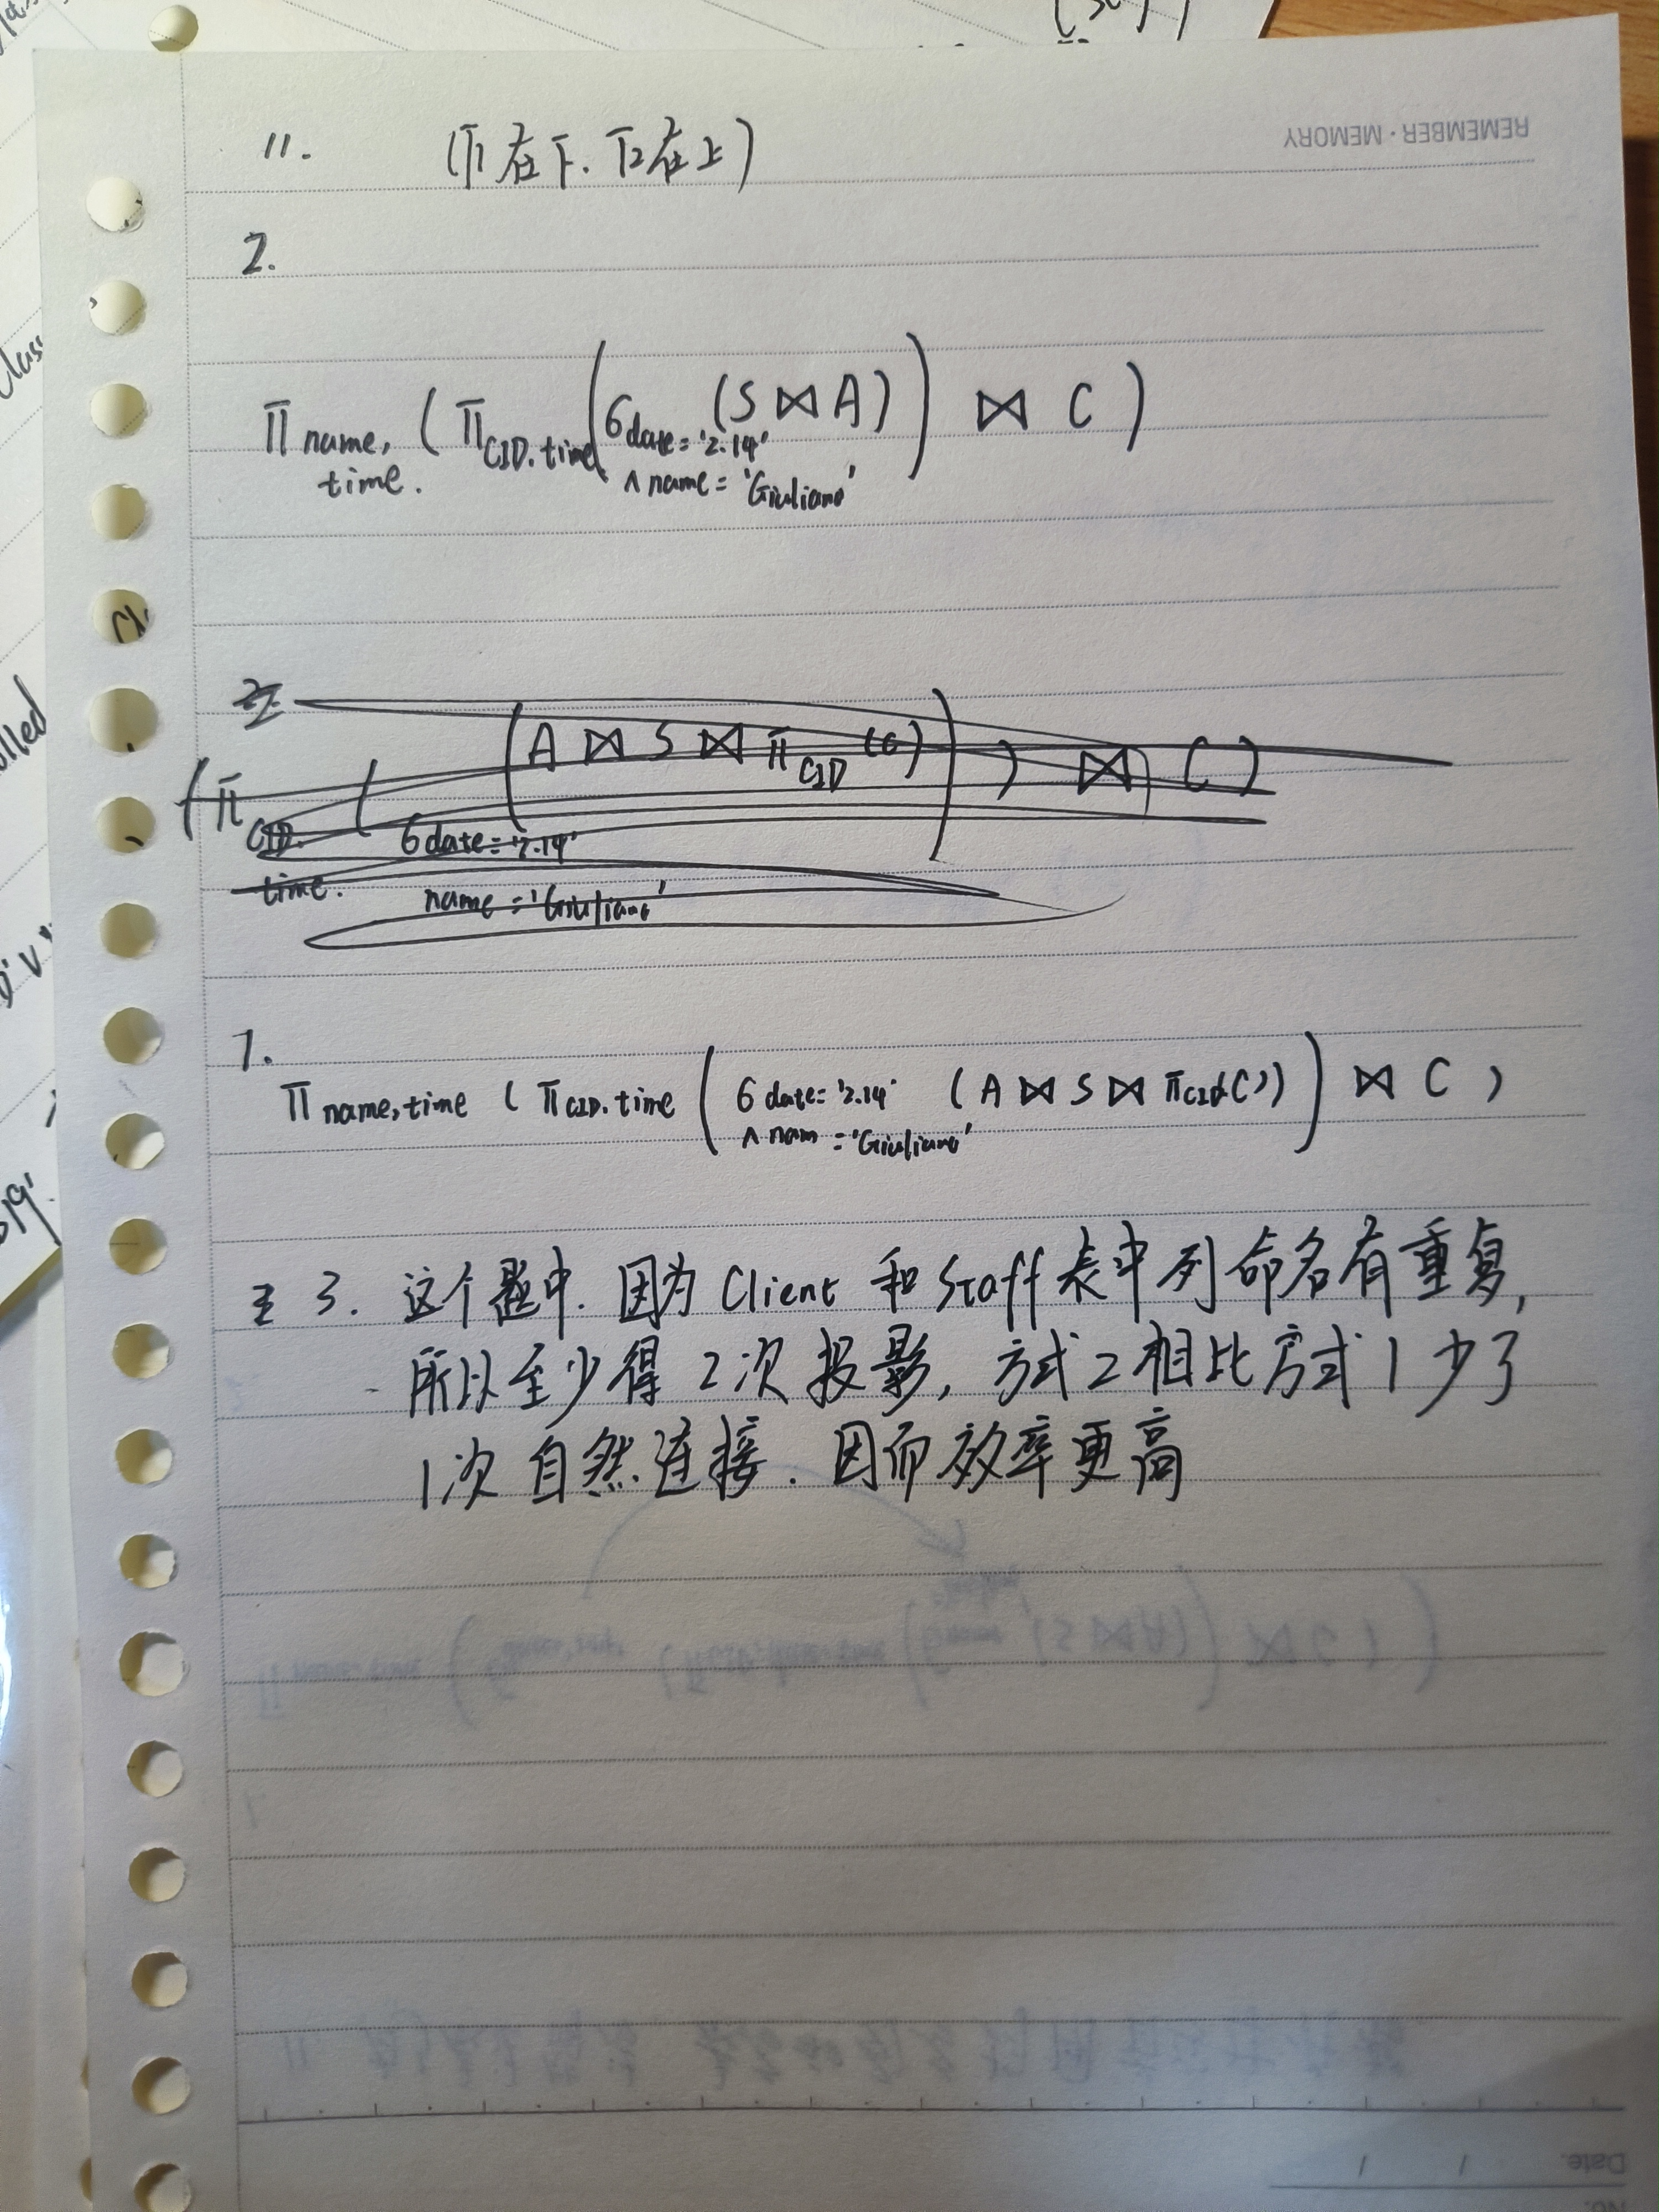 REMEMBER · MEMORY
11. (π1在下. π2在上)
2.
π name, time. ( π CID. time ( σ date='2.14' ∧ name='Giuliano' (S ⋈ A) ) ⋈ C )
( π CID. time. ( σ date='2.14' name='Giuliano' ( A ⋈ S ⋈ π CID (C) ) ) ⋈ C )
1.
π name, time ( π CID. time ( σ date='2.14' ∧ nam='Giuliano' (A ⋈ S ⋈ π CID(C)) ) ⋈ C )
3. 这个题中. 因为 Client 和 Staff 表中列命名有重复,
所以至少得 2次投影, 方式2相比方式1少了
1次自然连接. 因而效率更高
Date.
No.